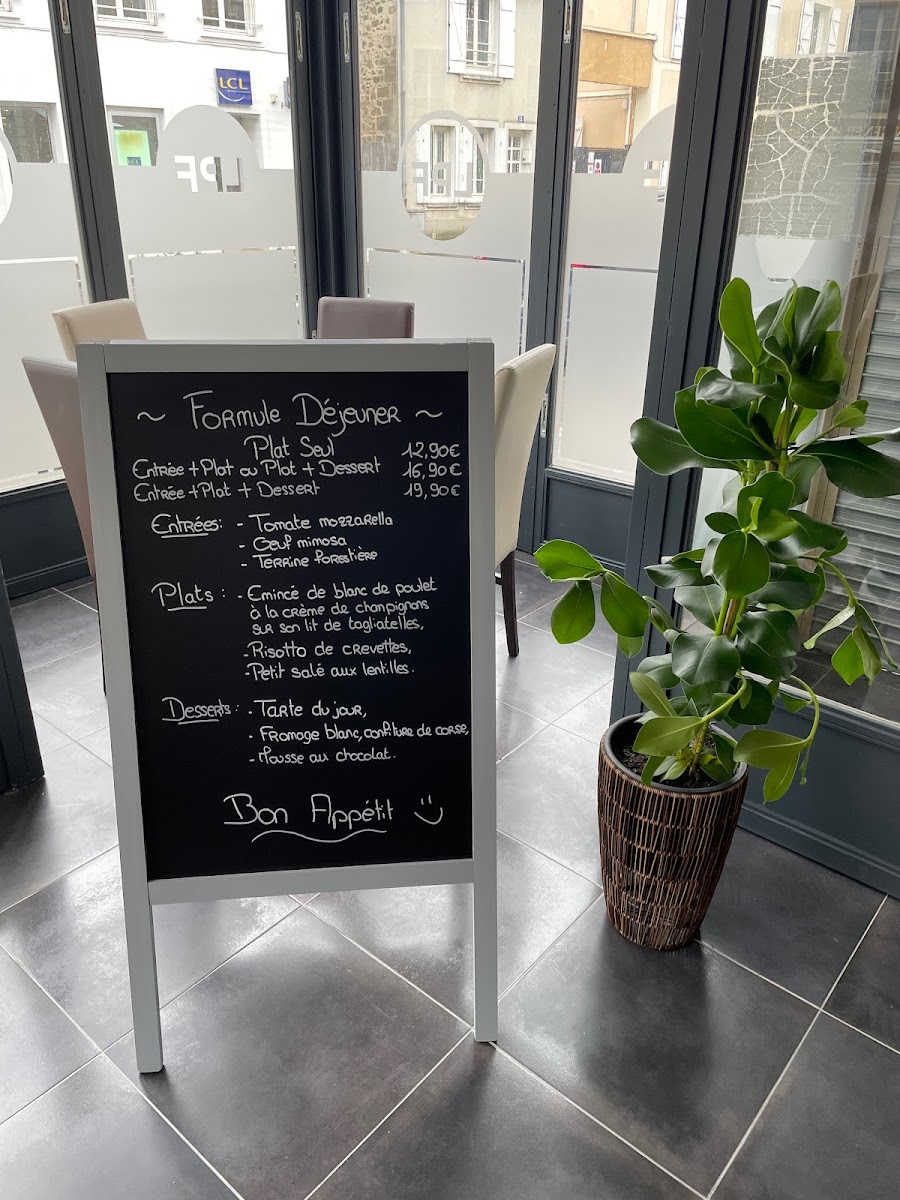 LCL
LPF
LPF
~ Formule Déjeuner ~
Plat Seul 12,90€
Entrée + Plat ou Plat + Dessert 16,90€
Entrée + Plat + Dessert 19,90€
Entrées: - Tomate mozzarella
- Oeuf mimosa
- Terrine forestière
Plats : - Emincé de blanc de poulet
à la crème de champignons
sur son lit de tagliatelles,
- Risotto de crevettes,
- Petit salé aux lentilles.
Desserts : - Tarte du jour,
- Fromage blanc, confiture de corse,
- Mousse au chocolat.
Bon Appétit